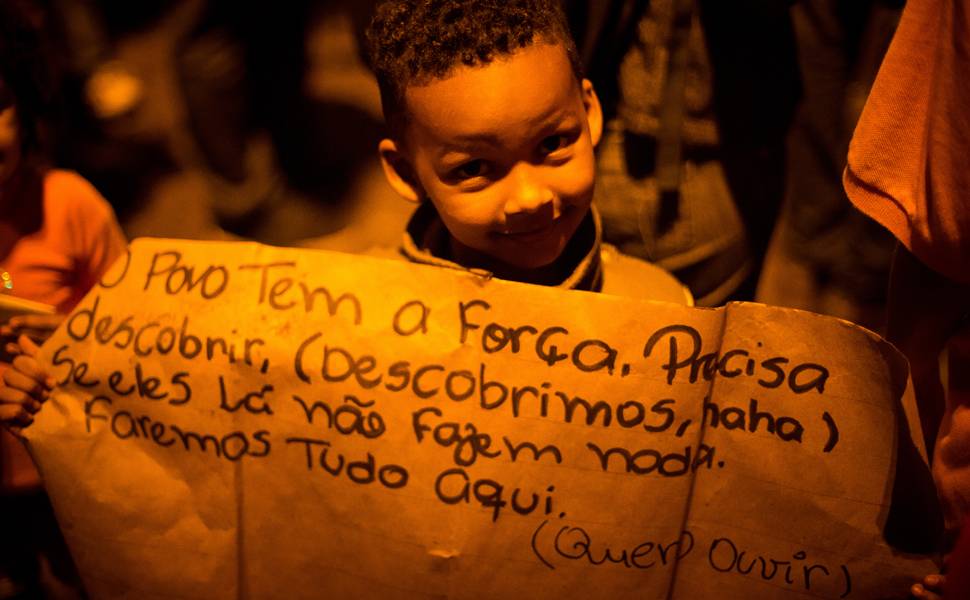 O Povo Tem a Força, Precisa
descobrir, (Descobrimos, haha)
Se eles Lá não fazem nada.
Faremos Tudo Aqui.
(Quero Ouvir)